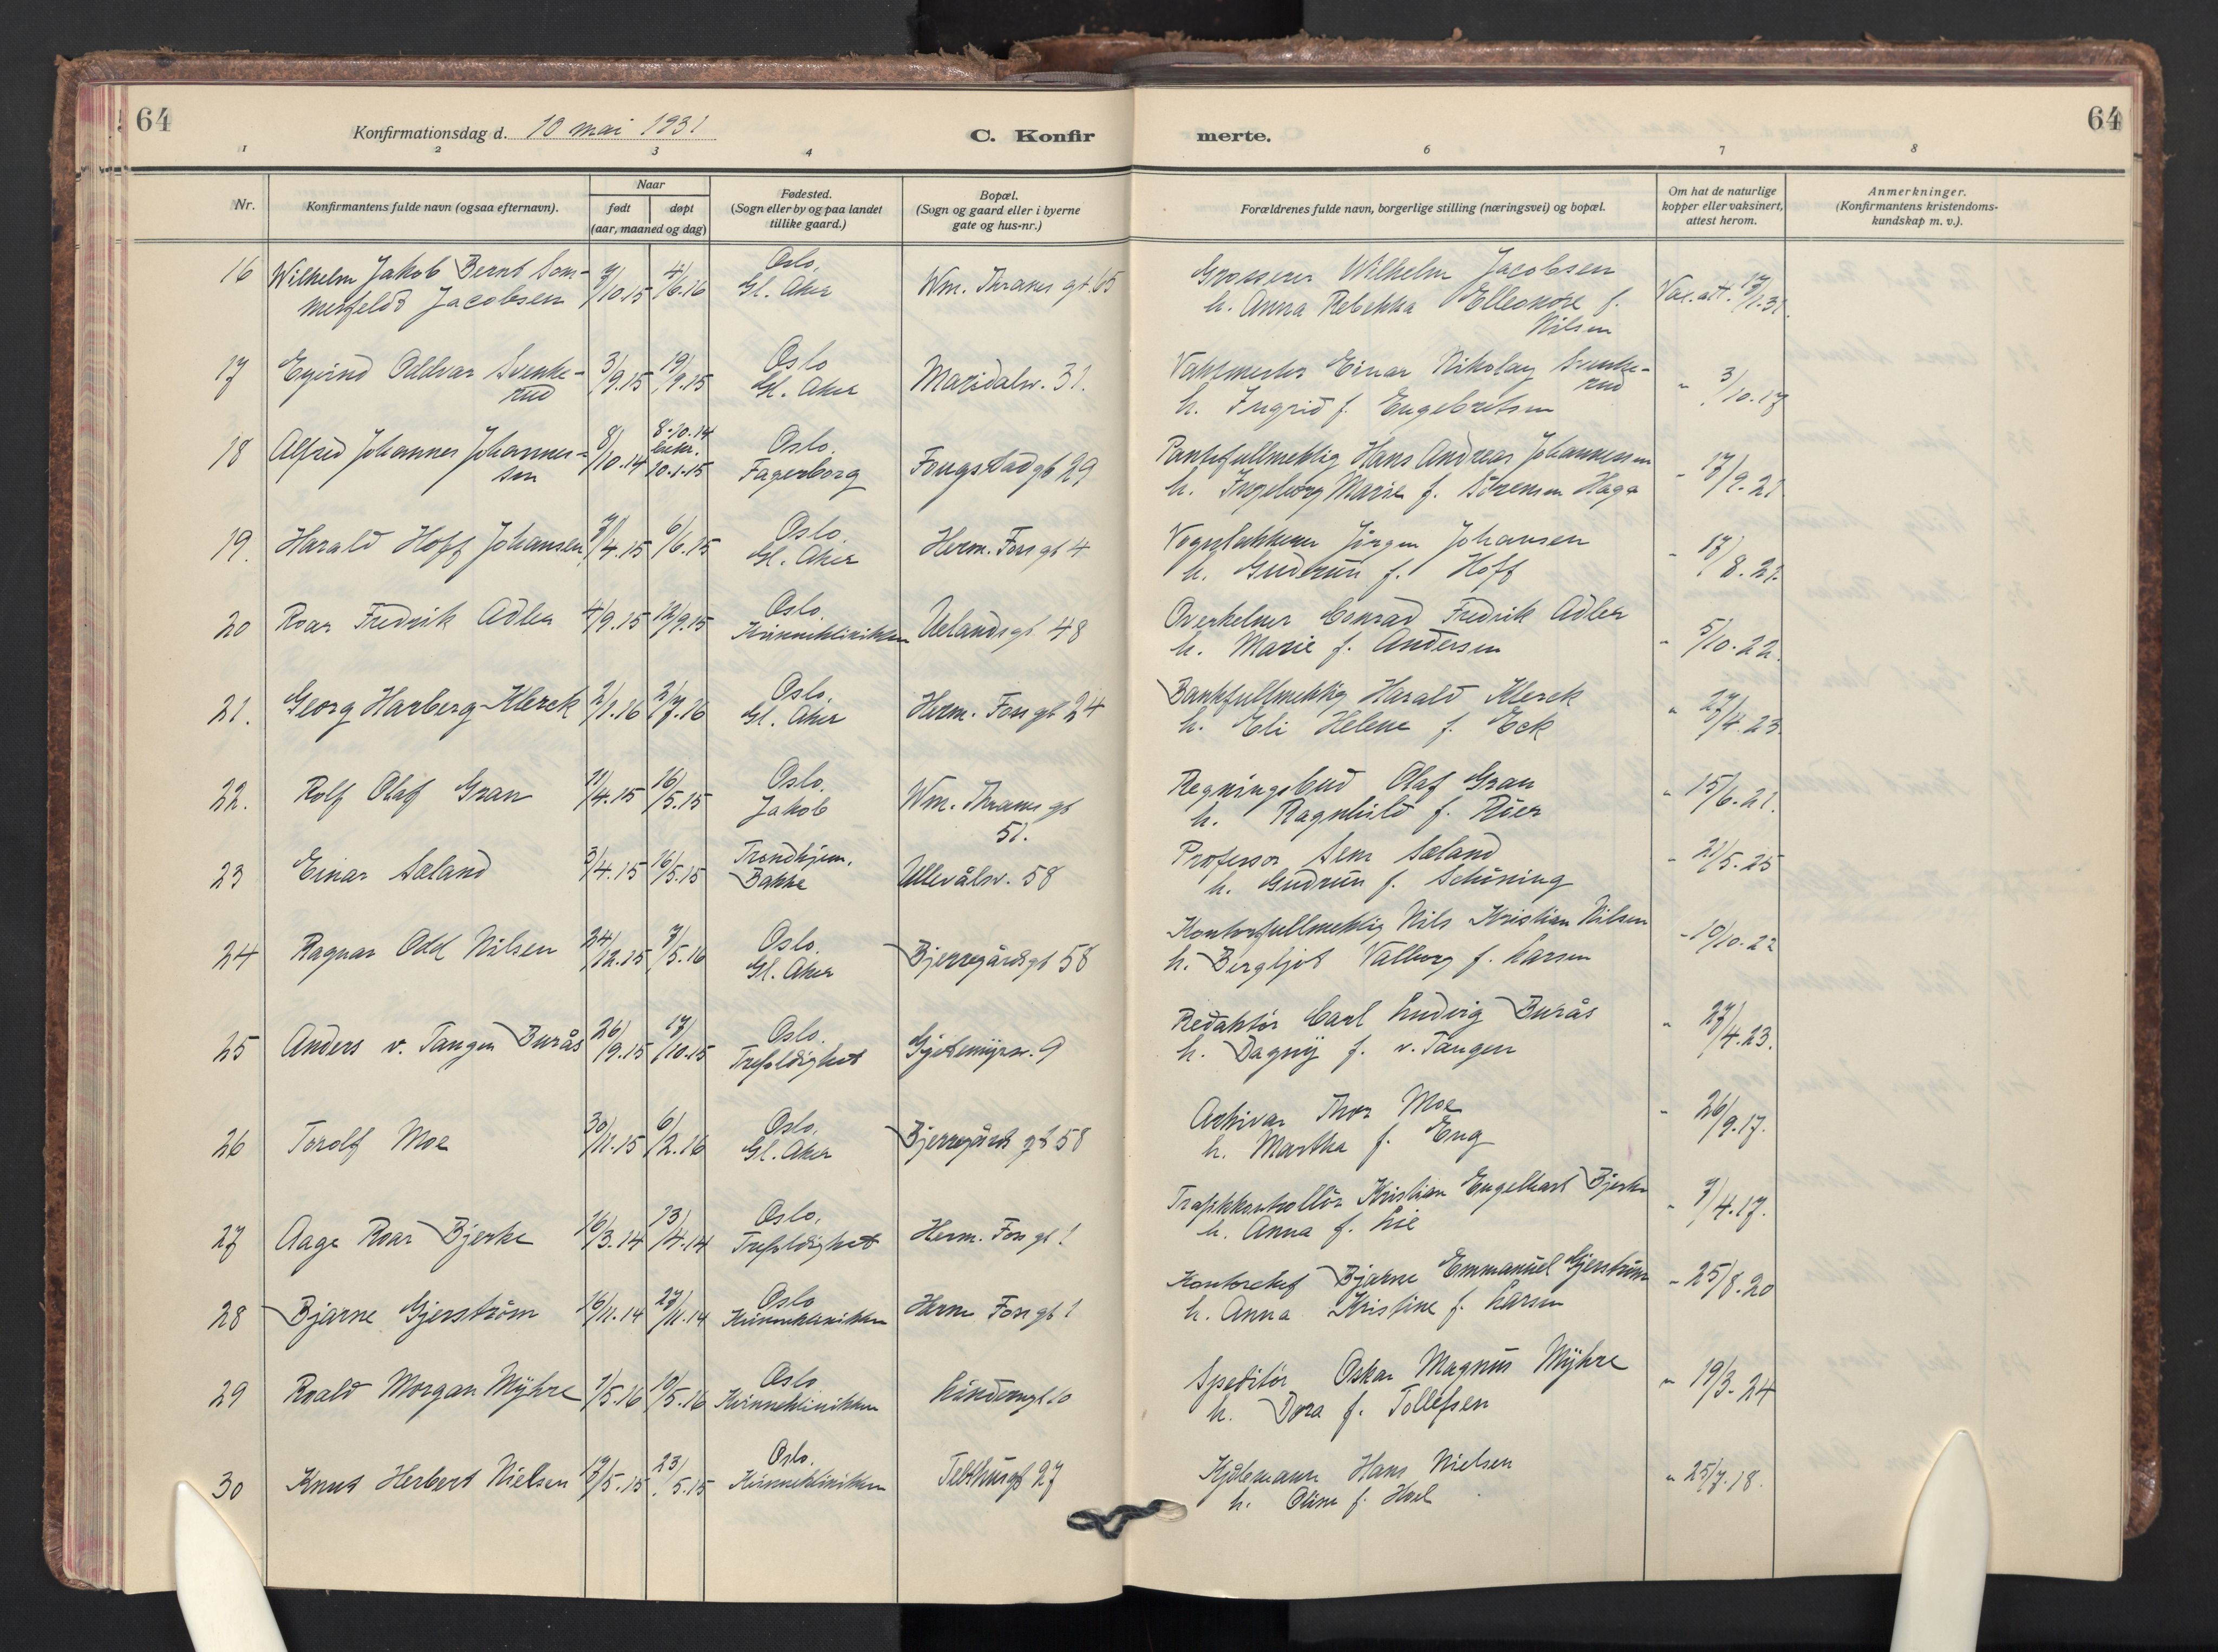 64
Konfirmationsdag d. 10 mai 1931
C. Konfirmerte.
64
1 2 3 4 6 7 8
Nr.
Konfirmantens fulde navn (ogsaa efternavn).
Naar
født døpt
(aar, maaned og dag)
Fødested.
(Sogn eller by og paa landet
tillike gaard.)
Bopæl.
(Sogn og gaard eller i byerne
gate og hus-nr.)
Forældrenes fulde navn, borgerlige stilling (næringsvei) og bopæl.
Om hat de naturlige
kopper eller vaksinert,
attest herom.
Anmerkninger.
(Konfirmantens kristendoms-
kundskap m. v.).
16 Wilhelm Jakob Bernt Som- 7/10.15 4/6.16 Oslo, Wm. Thranes gt. 65 Grosserer Wilhelm Jacobsen Vac.att. 17/1.31.
merfeldt Jacobsen Gl. Aker h. Anna Rebekka Elleonore f.
Nilsen
17 Eyvind Oddvar Svenke- 3/9.15 19/9.15 Oslo Maridalsv. 31. Vaktmester Einar Nikolay Svenke- " 3/10.17
rud Gl. Aker rud
h. Ingrid f. Engebretsen
18 Alfred Johannes Johannes- 8/10.14 8-10.14 Oslo. Fougstadgt 29 Hans Andreas Johannessen - 17/9.21
sen bekr. 10.1.15 Fagerborg h. Ingeborg Marie f. Sørensen Haga
19. Harald Hoff Johansen 7/4.15 6/6.15 Oslo. Herm. Foss gt 4 Jørgen Johansen - 17/8.21.
Gl. Aker h. Gudrun f. Hoff
20 Roar Fredrik Adler 4/9.15 12/9.15 Oslo. Uelandsgt. 48 Overkelner Conrad Fredrik Adler - 5/10.22.
Kvinneklinikken h. Marie f. Andersen
21. Georg Harberg Klerck 2/1.16 2/7.16 Oslo. Herm. Foss gt 24 Bankfullmektig Harald Klerck " 27/4.23.
Gl. Aker h. Eli Helene f. Eck
22. Rolf Olaf Gran 11/4.15 16/5.15 Oslo. Wm. Thranes gt Regningsbud Olaf Gran " 15/6.21.
Jakob 51. h. Ragnhild f. Riier
23 Einar Sæland 3/4.15 16/5.15 Trondhjem. Ullevålsv. 58 Professor Sem Sæland - 21/5.25
Bakke h. Gudrun f. Schüning
24 Ragnar Odd Nilsen 24/12.15 7/5.16 Oslo. Bjerregårdsgt 58 Kontorfullmektig Nils Kristian Nilsen - 10/10.22
Gl. Aker h. Bergljot Valborg f. Larsen
25 Anders v. Tangen Burås 26/9.15 17/10.15 Oslo. Gjetemyrsv. 9 Redaktør Carl Ludvig Burås " 27/4.23.
Trefoldighet h. Dagny f. v. Tangen
26 Torolf Moe 30/11.15 6/2.16 Oslo. Bjerregårds gt 58 Arkivar Thor Moe " 26/9.17.
Gl. Aker h. Martha f. Eng
27 Aage Roar Bjerke 16/3.14 13/4.14 Oslo. Herm. Foss gt 1 Trafikkontrollør Kristian Engelhart Bjerke " 7/4.17.
Trefoldighet h. Anna f. Lie
28 Bjarne Gjerstrøm 16/11.14 27/11.14 Oslo Herm Foss gt 1 Kontorchef Bjarne Emmanuel Gjerstrøm " 25/8.20
Kvinneklinikken h. Anna Kristine f. Larsen
29 Roald Morgan Myhre 1/5.16 10/5.16 Oslo Speditør Oskar Magnus Myhre " 19/3.24
Kvinneklinikken h. Dora f. Tollefsen
30 Knut Herbert Nielsen 17/5.15 23/5.15 Oslo. Telthusgt 27 Kjølemann Hans Nielsen " 25/7.18.
Kvinneklinikken h. Oline f. Hoel